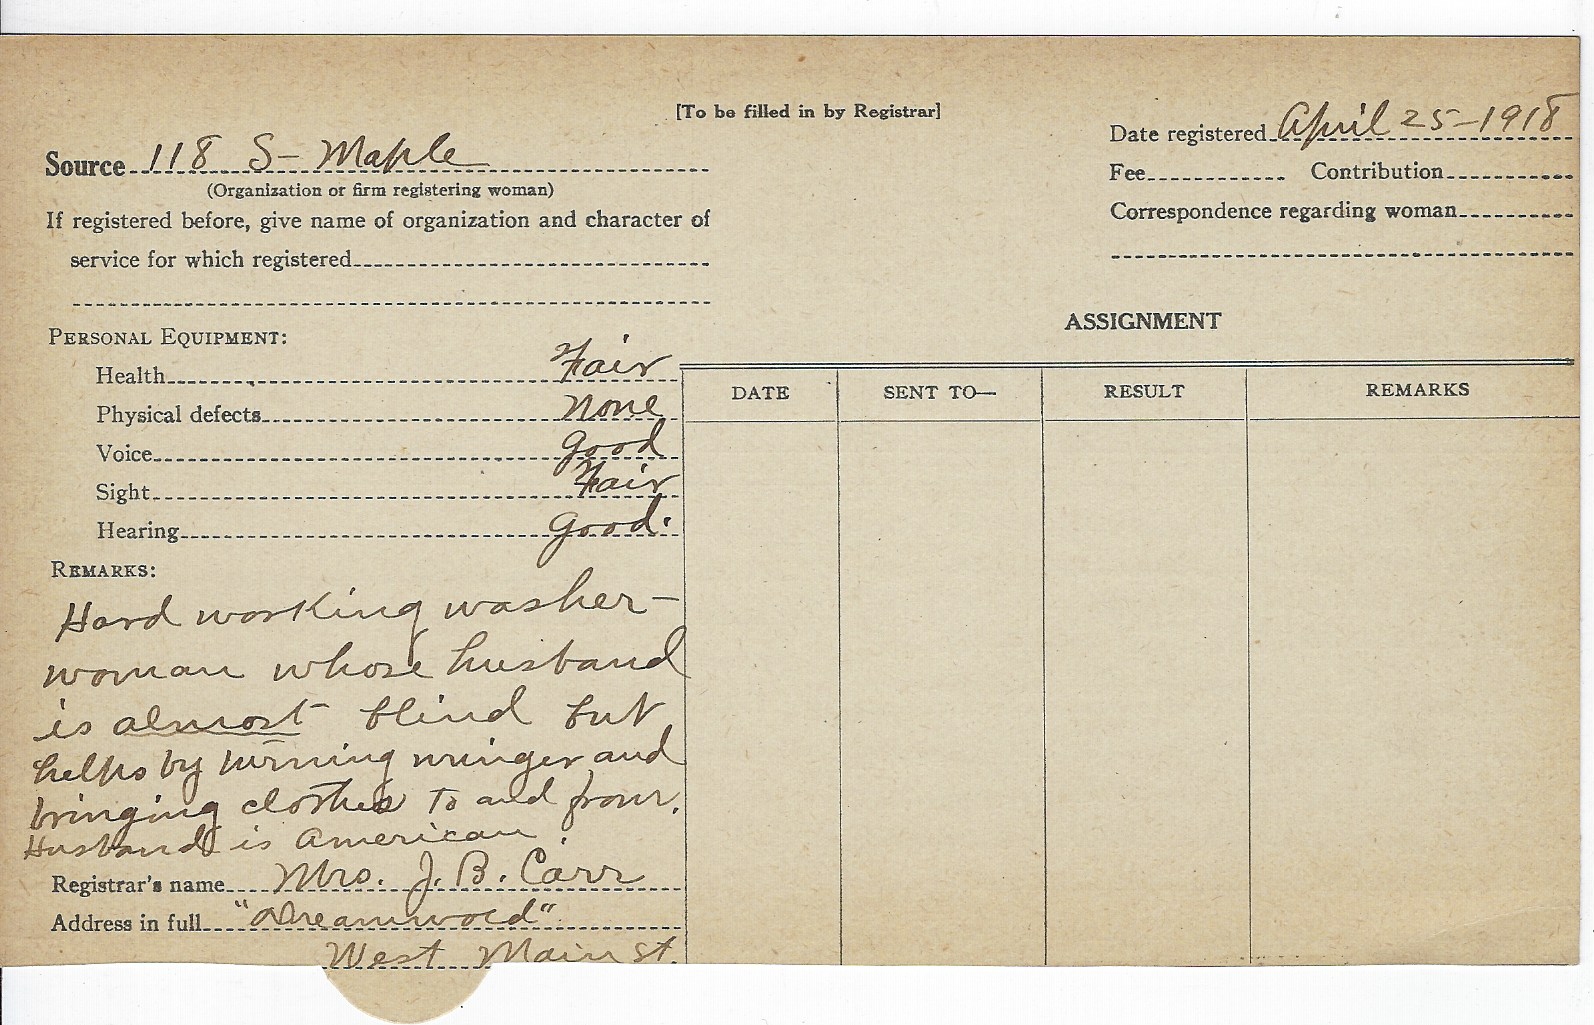 [To be filled in by Registrar]
Date registered April 25-1918
Source 118 S- Maple
(Organization or firm registering woman)
Fee Contribution
If registered before, give name of organization and character of
Correspondence regarding woman
service for which registered
ASSIGNMENT
PERSONAL EQUIPMENT:
Health Fair
Physical defects None
Voice Good
Sight Fair
Hearing Good.
DATE SENT TO— RESULT REMARKS
REMARKS:
Hard working washer-
woman whose husband
is almost blind but
helps by turning wringer and
bringing clothes to and from.
Husband is American.
Registrar's name Mrs. J. B. Carr
Address in full "Dreamwold"
West Main St.